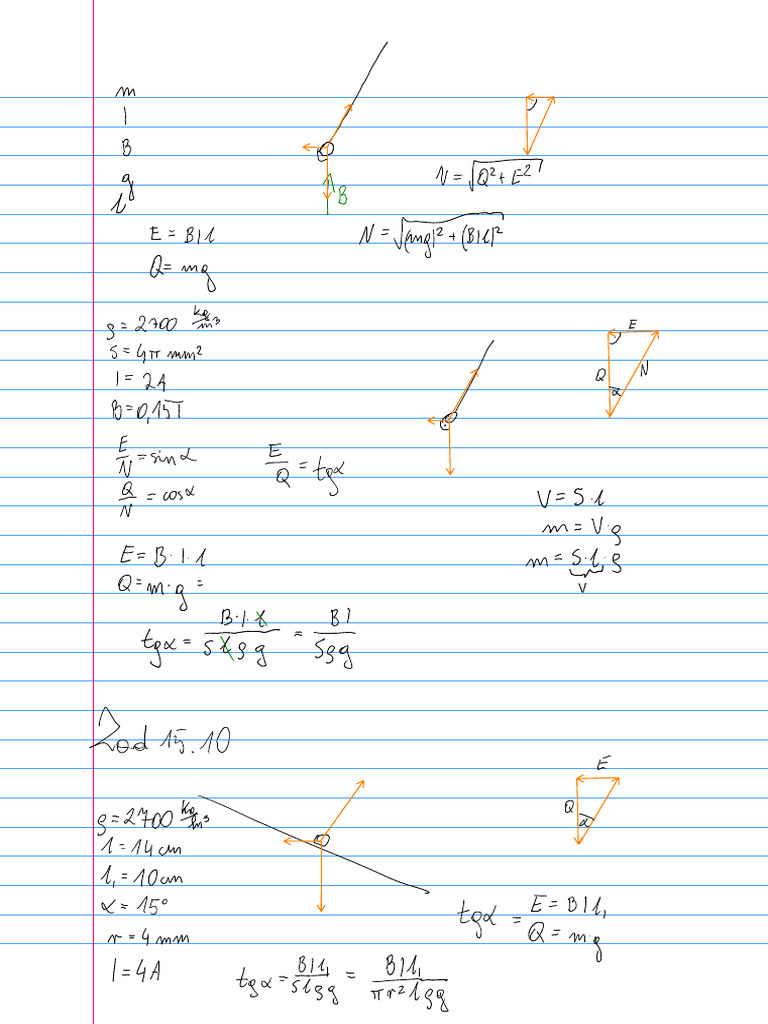 m
I
B
g
l
B
N = √(Q² + E²)
E = BIl
N = √((mg)² + (BIl)²)
Q = mg
ρ = 2700 kg/m³
S = 4π mm²
I = 2A
B = 0,15T
E
Q
N
α
E/N = sinα
E/Q = tgα
Q/N = cosα
V = S·l
m = V·ρ
m = S·l·ρ
V
E = B·I·l
Q = m·g =
tgα = B·I·l / Slρg = BI / Sρg
Zad 15.10
E
Q
α
ρ = 2700 kg/m³
l = 14 cm
l₁ = 10cm
α = 15°
r = 4 mm
I = 4A
tgα = E = BIl₁ / Q = m·g
tgα = BIl₁ / Slρg = BIl₁ / πr²lρg